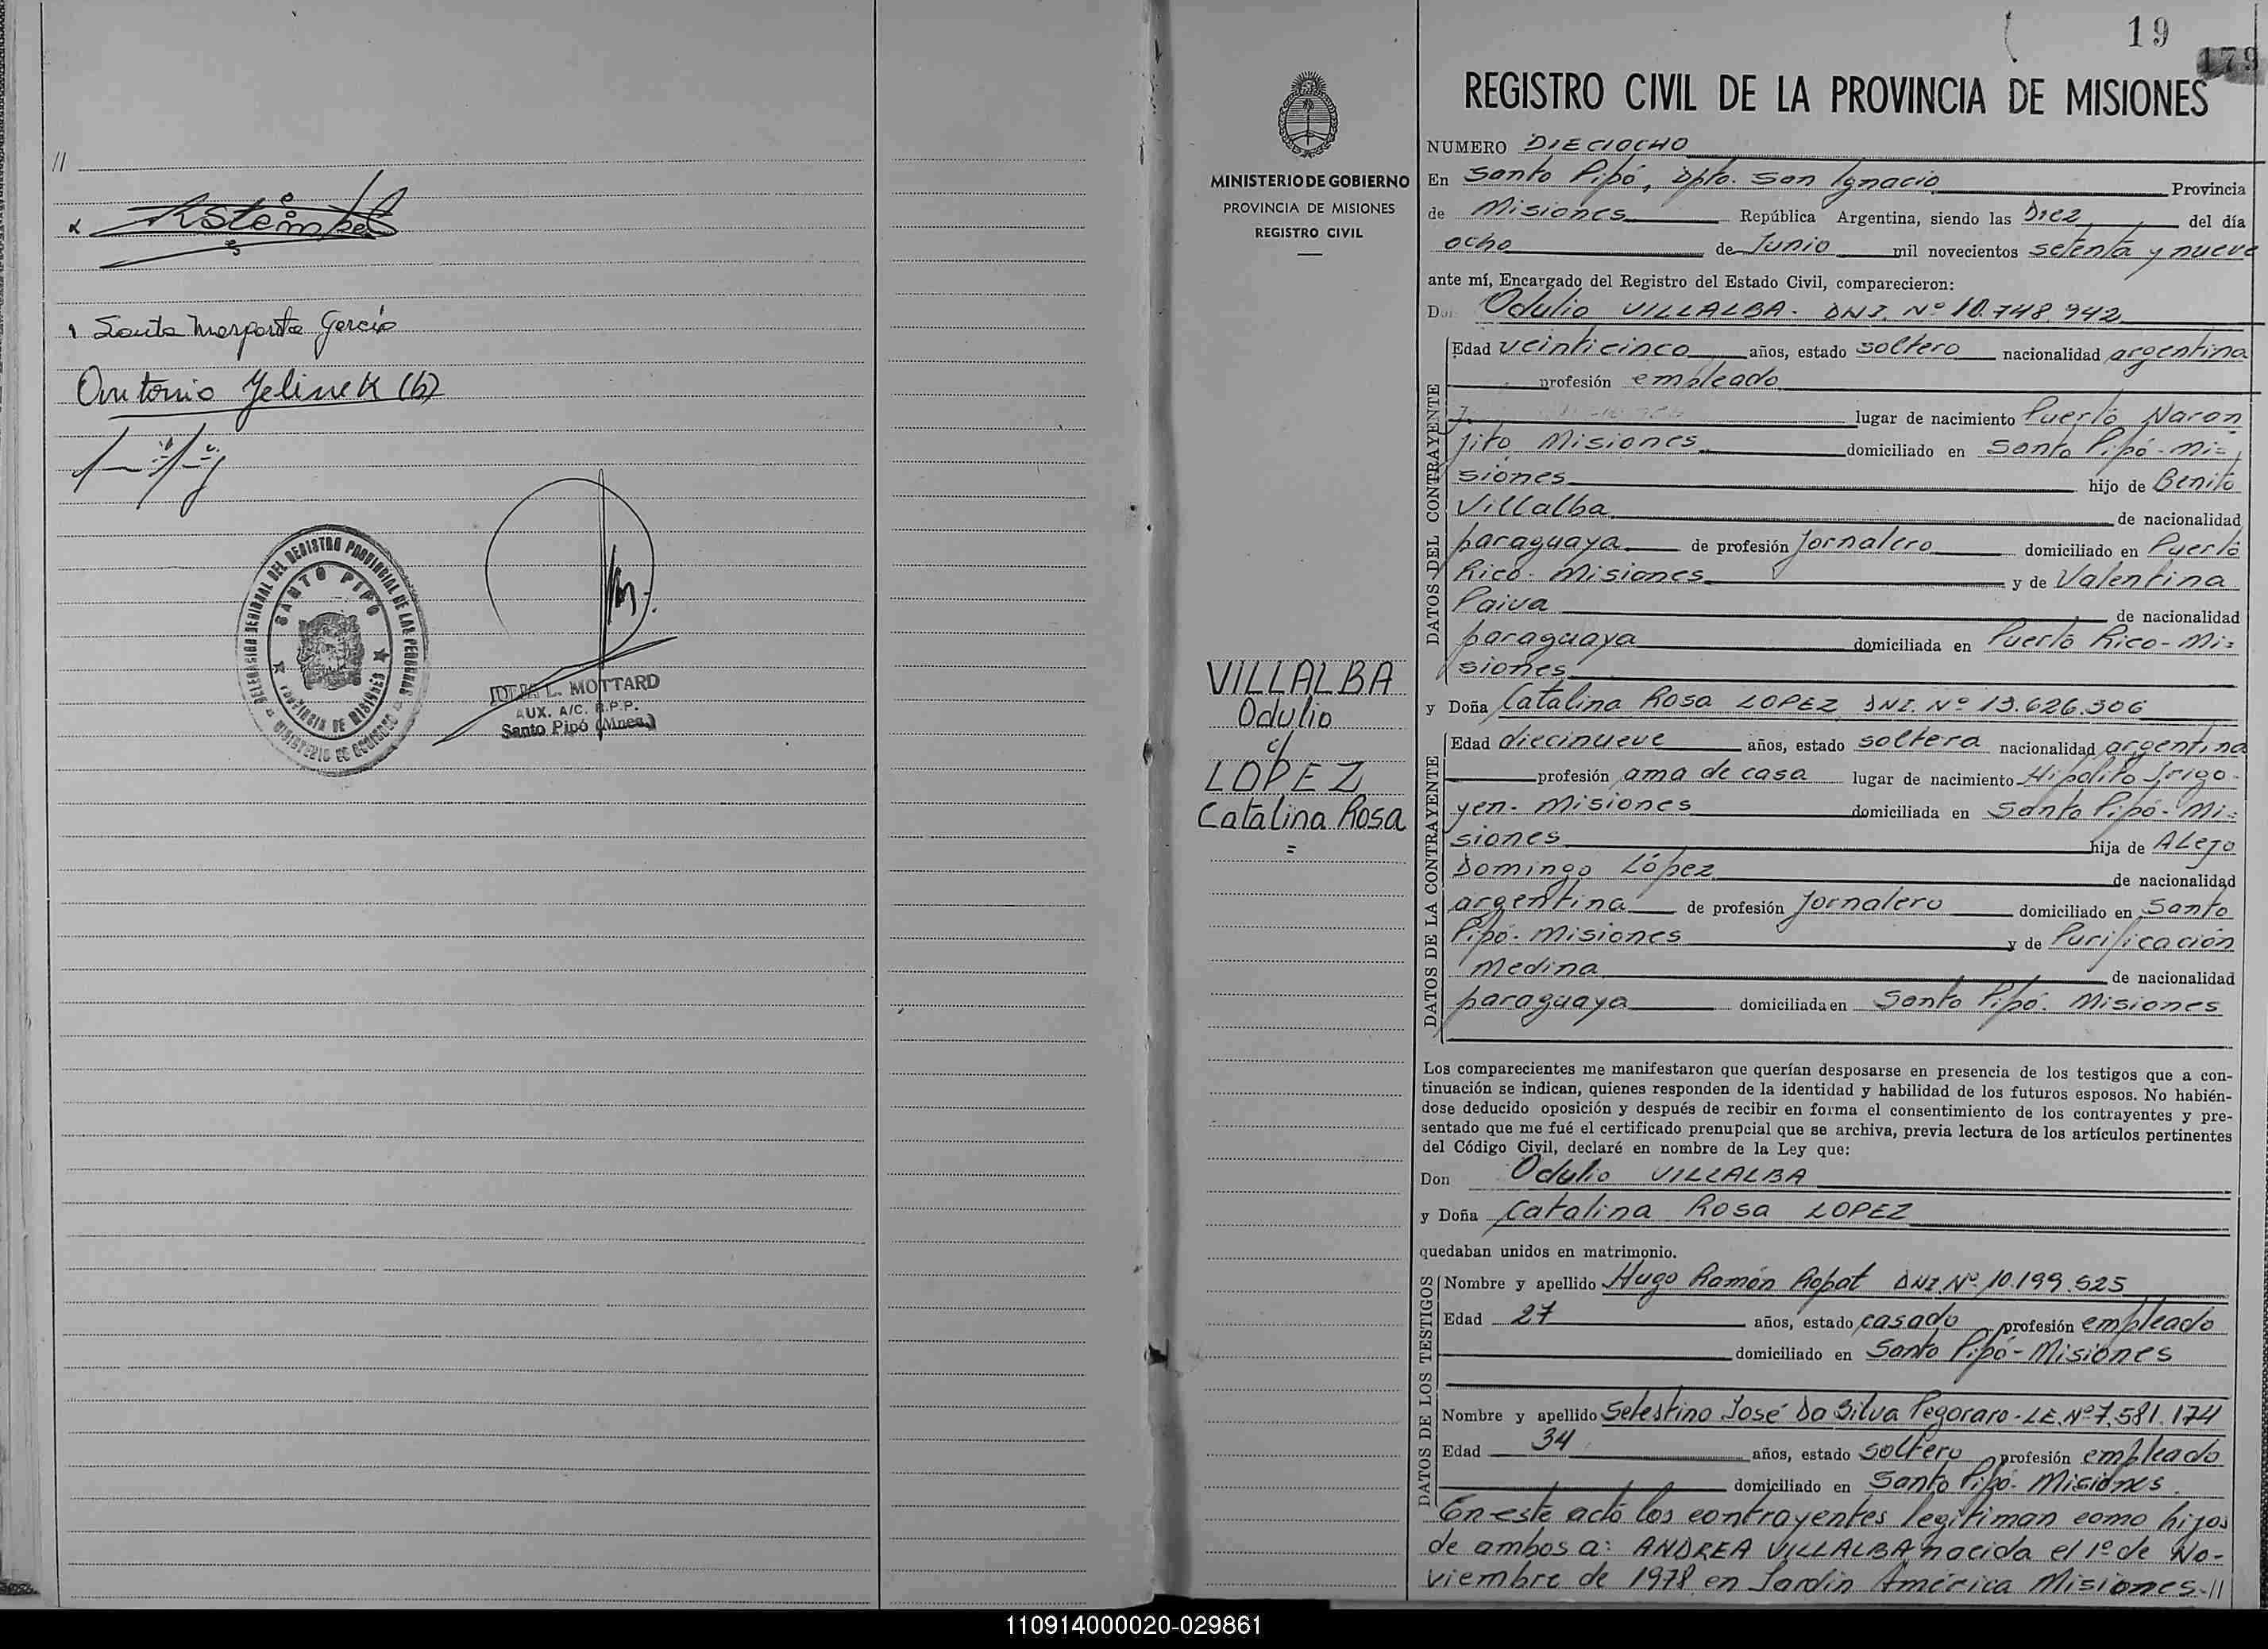 //
Santa Margarita García
Antonio Yelinek (h)
DELEGACION REGIONAL DEL REGISTRO PROVINCIAL DE LAS PERSONAS
SANTO PIPO
PROVINCIA DE MISIONES
MINISTERIO DE GOBIERNO
L. MOTTARD
AUX. A/C. R.P.P.
Santo Pipó (Mnes.)
19
179
MINISTERIO DE GOBIERNO
PROVINCIA DE MISIONES
REGISTRO CIVIL
VILLALBA
Odulio
c/
LOPEZ
Catalina Rosa
=
REGISTRO CIVIL DE LA PROVINCIA DE MISIONES
NUMERO DIECIOCHO
En Santo Pipó, Dpto. San Ignacio Provincia
de Misiones República Argentina, siendo las Diez del día
ocho de Junio mil novecientos setenta y nueve
ante mí, Encargado del Registro del Estado Civil, comparecieron:
Don Odulio VILLALBA - DNI. Nº 10.748.942
DATOS DEL CONTRAYENTE
Edad veinticinco años, estado soltero nacionalidad argentina
profesión empleado
lugar de nacimiento Puerto Naran
jito Misiones domiciliado en Santo Pipó - Mi=
siones hijo de Benito
Villalba de nacionalidad
paraguaya de profesión Jornalero domiciliado en Puerto
Rico - Misiones y de Valentina
Paiva de nacionalidad
paraguaya domiciliada en Puerto Rico - Mi=
siones
y Doña Catalina Rosa LOPEZ DNI. Nº 13.626.306
DATOS DE LA CONTRAYENTE
Edad diecinueve años, estado soltera nacionalidad argentina
profesión ama de casa lugar de nacimiento Hipolito Irigo-
yen - Misiones domiciliada en Santo Pipó - Mi=
siones hija de Alejo
Domingo López de nacionalidad
argentina de profesión Jornalero domiciliado en Santo
Pipó - Misiones y de Purificación
Medina de nacionalidad
paraguaya domiciliada en Santo Pipó - Misiones
Los comparecientes me manifestaron que querían desposarse en presencia de los testigos que a con-
tinuación se indican, quienes responden de la identidad y habilidad de los futuros esposos. No habién-
dose deducido oposición y después de recibir en forma el consentimiento de los contrayentes y pre-
sentado que me fué el certificado prenupcial que se archiva, previa lectura de los artículos pertinentes
del Código Civil, declaré en nombre de la Ley que:
Don Odulio VILLALBA
y Doña Catalina Rosa LOPEZ
quedaban unidos en matrimonio.
DATOS DE LOS TESTIGOS
Nombre y apellido Hugo Ramón Ropat DNI. Nº 10.199.525
Edad 27 años, estado casado profesión empleado
domiciliado en Santo Pipó - Misiones
Nombre y apellido Selestino José Da Silva Pegoraro - LE. Nº 7.581.174
Edad 34 años, estado soltero profesión empleado
domiciliado en Santo Pipó - Misiones
En este acto los contrayentes legitiman como hijos
de ambos a: ANDREA VILLALBA nacida el 1º de No-
viembre de 1978 en Jardín América Misiones - //
110914000020-029861